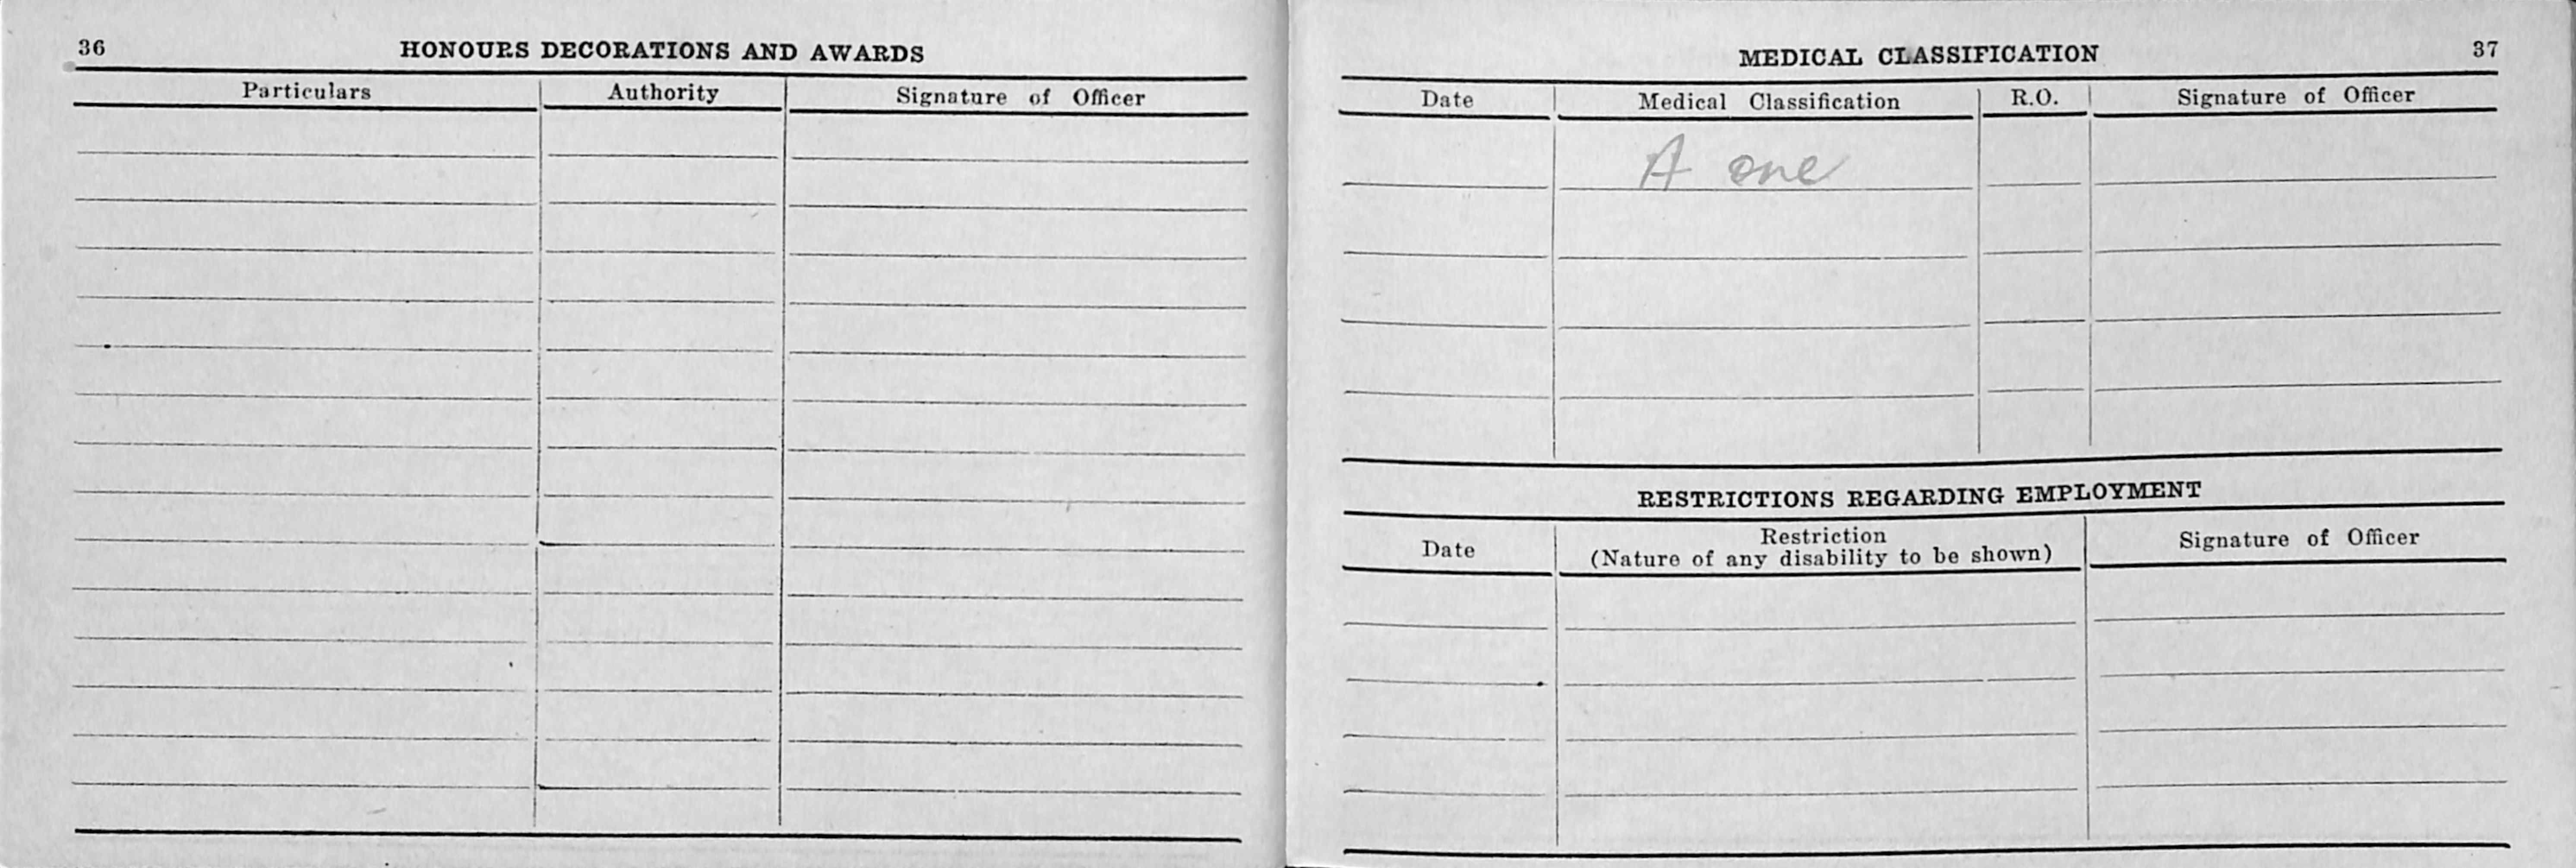 36
HONOURS DECORATIONS AND AWARDS
Particulars Authority Signature of Officer
37
MEDICAL CLASSIFICATION
Date Medical Classification R.O. Signature of Officer
A one
RESTRICTIONS REGARDING EMPLOYMENT
Date Restriction (Nature of any disability to be shown) Signature of Officer